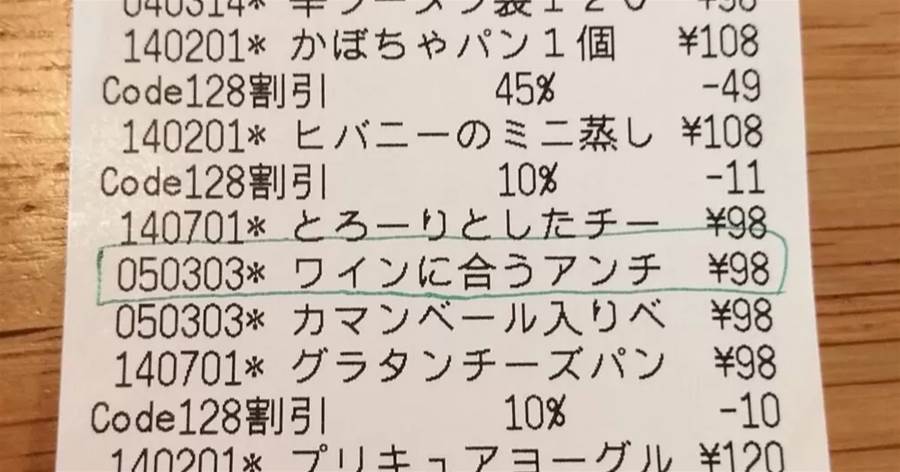 140201* かぼちゃパン1個 ¥108
Code128割引 45% -49
140201* ヒバニーのミニ蒸し ¥108
Code128割引 10% -11
140701* とろーりとしたチー ¥98
050303* ワインに合うアンチ ¥98
050303* カマンベール入りベ ¥98
140701* グラタンチーズパン ¥98
Code128割引 10% -10
140201* プリキュアヨーグル ¥120